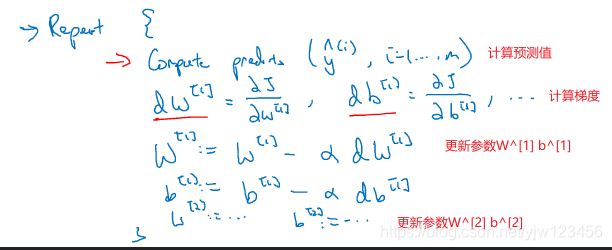 → Repeat {
→ Compute predicts (ŷ^(i), i=1...,m) 计算预测值
dW^[1] = ∂J/∂W^[1], db^[1] = ∂J/∂b^[1], ... 计算梯度
W^[1] := W^[1] - α dW^[1] 更新参数W^[1] b^[1]
b^[1] := b^[1] - α db^[1]
W^[2] := ... b^[2] := ... 更新参数W^[2] b^[2]
}
https://blog.csdn.net/yjw123456